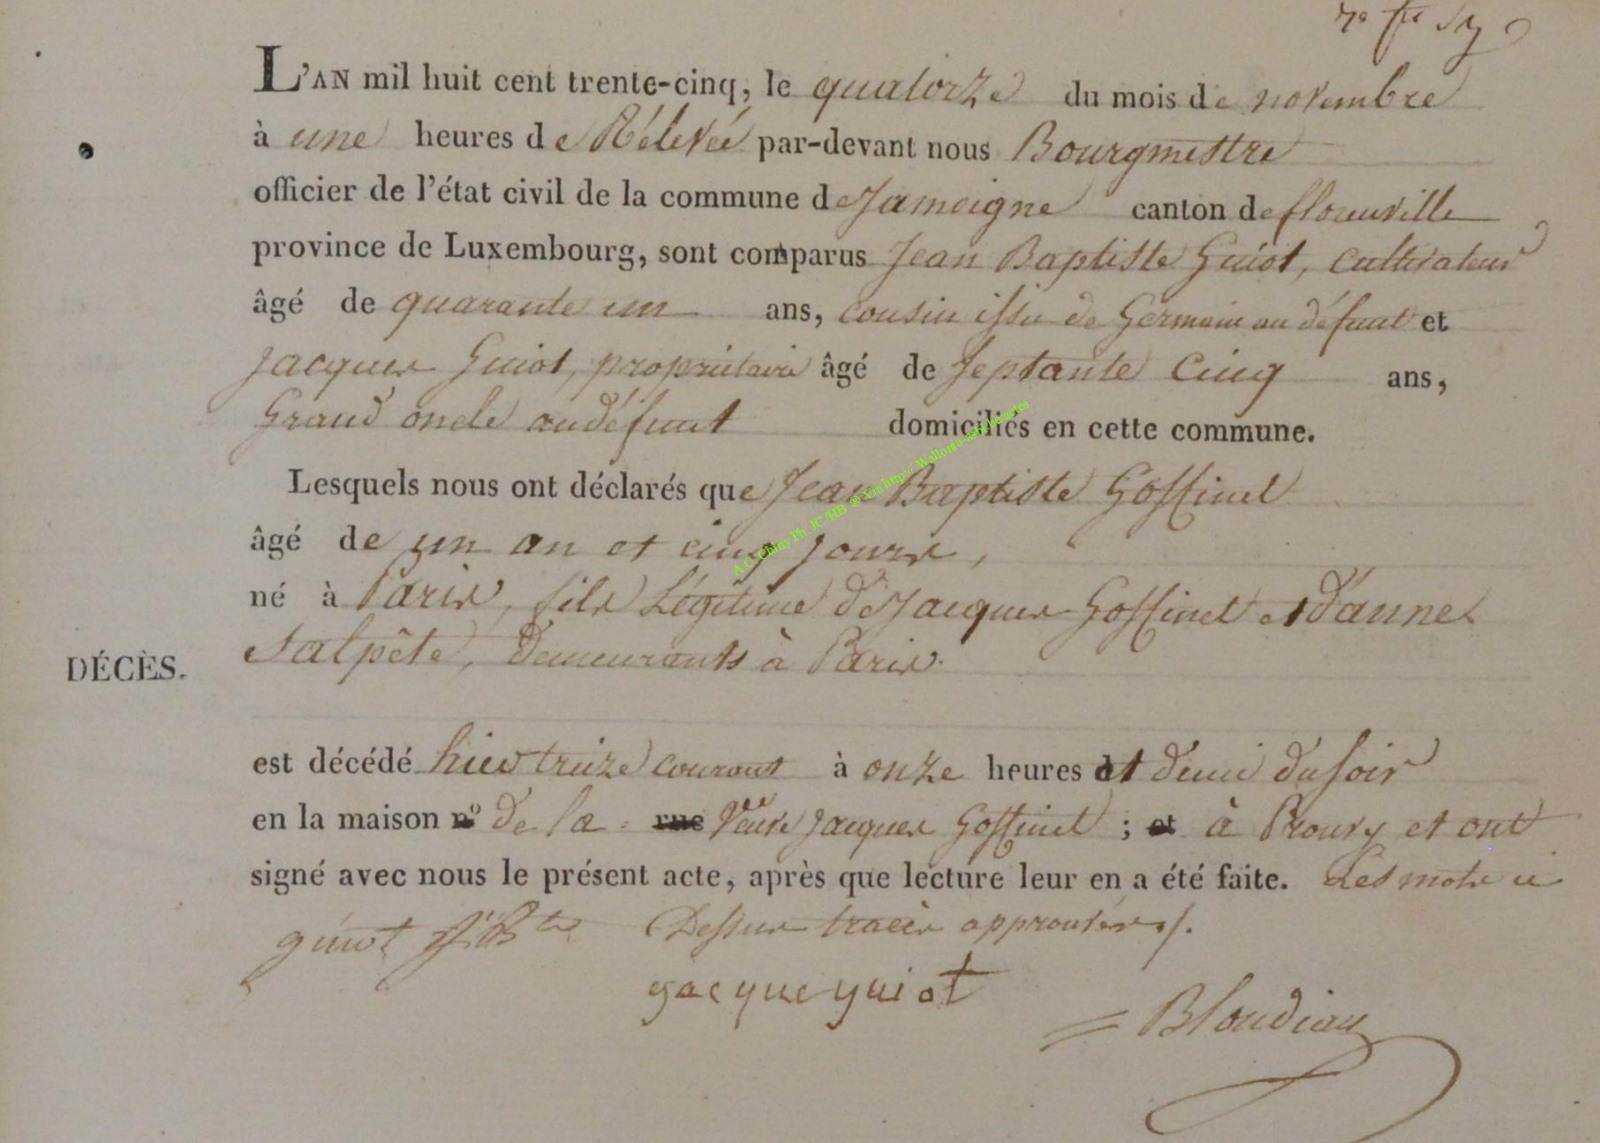 L'AN mil huit cent trente-cinq, le quatorze du mois de novembre
à une heures de Rélevée par-devant nous Bourgmestre
officier de l'état civil de la commune de Jamoigne canton de florenville
province de Luxembourg, sont comparus Jean Baptiste Guiot, cultivateur
âgé de quarante un ans, cousin issu de Germain au défunt et
Jacques Guiot, propriétaire âgé de septante cinq ans,
Grand oncle au défunt domiciliés en cette commune.
Lesquels nous ont déclarés que Jean Baptiste Goffinet
âgé de un an et cinq jours,
né à Paris, fils Légitime de Jacques Goffinet et d'anne
Salpêté, demeurants à Paris.
DÉCÈS.
est décédé hier treize courant à onze heures et demi du soir
en la maison n° de la rue Veuve Jacques Goffinet ; et à Prouvy et ont
signé avec nous le présent acte, après que lecture leur en a été faite. Les mots ci
Dessus tracés approuvés ./.
guiot J Bte
jacque guiot
Blondiau